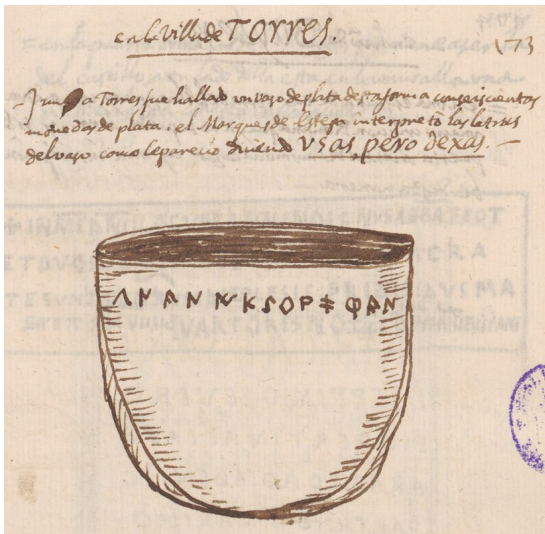 en la Villa de TORRES.
173
Junto a Torres fue hallado un vaso de plata desta forma con seiscientas
monedas de plata. el Marques de Estepa interpretò las letras
del vaso como le parecio diciendo VSAS, pero dexas.
ΛΝΑΝΝ KSOP‡ΦΑΝ